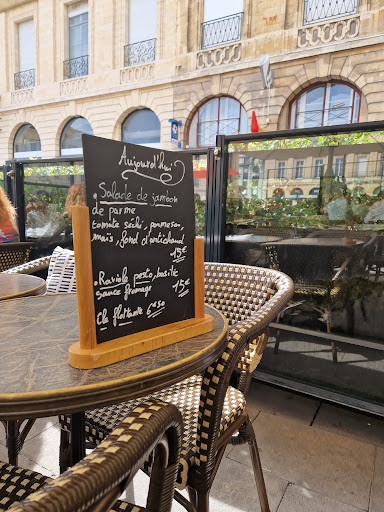 Aujourd'hui
• Salade de jambon
de parme
tomate séché, parmesan,
maïs, fond d'artichaud
15€
• Raviole pesto, basilic
sauce fromage 15€
île flottante 6€50